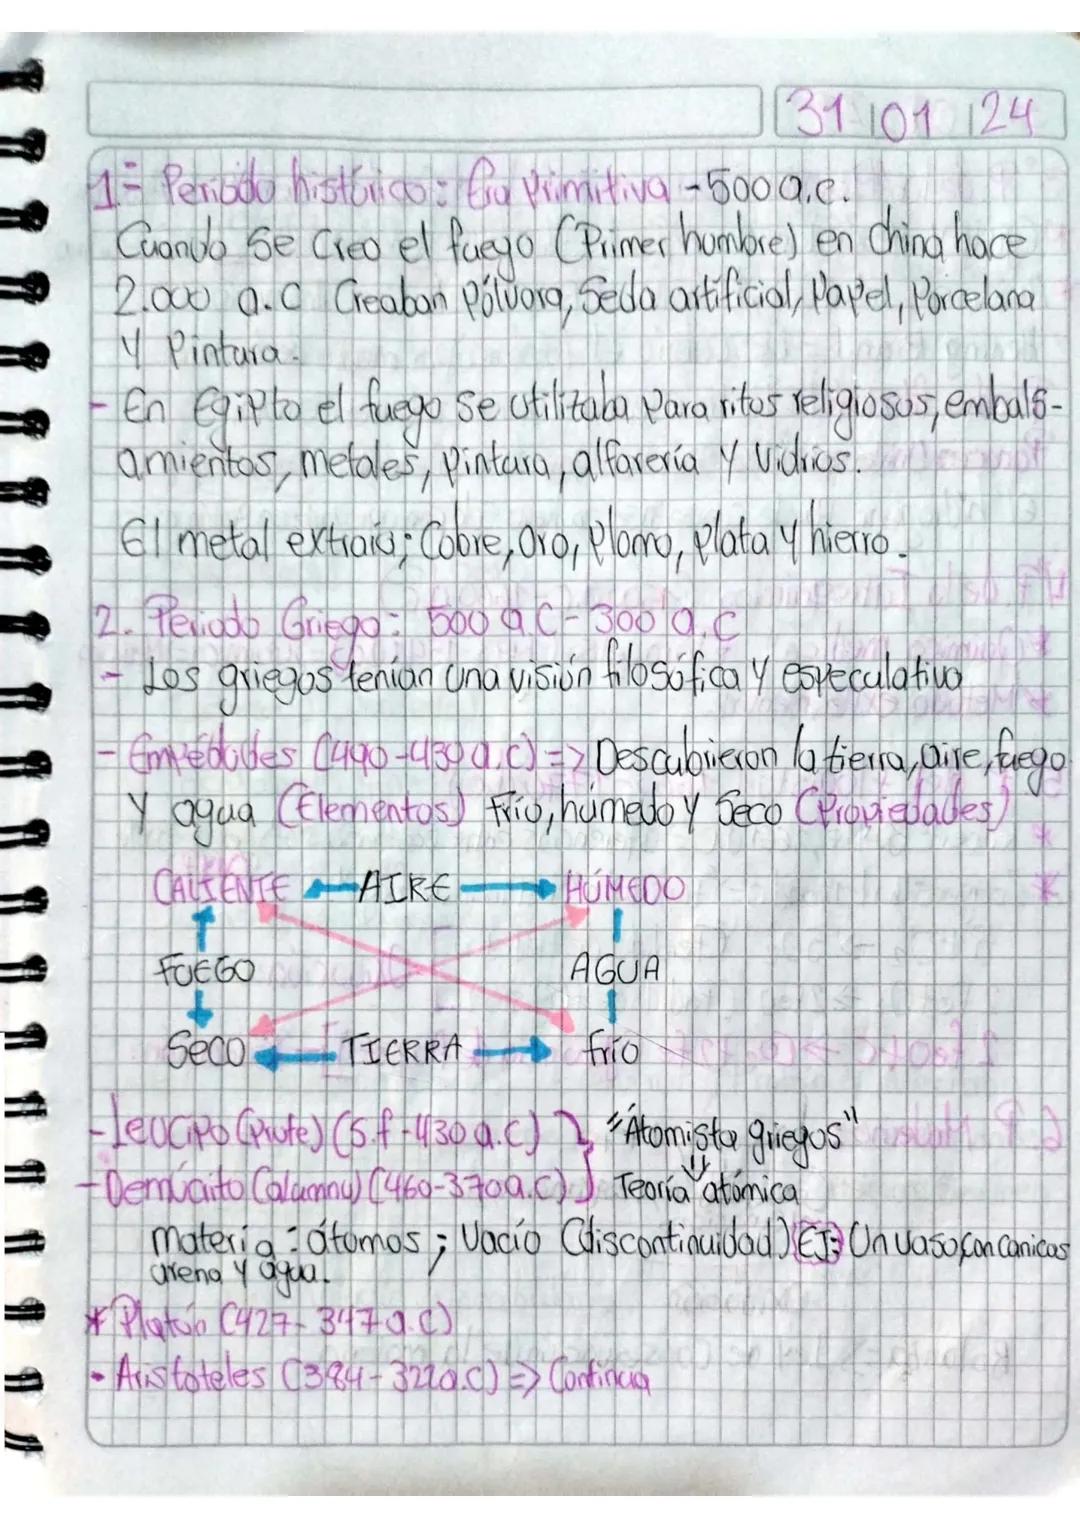 31 01 24
1= Periodo histórico: Era Primitiva - 500 a.c.
Cuando se Creo el fuego (Primer hombre) en China hace
2.000 a.C Creaban Pólvora, Seda artificial, Papel, Porcelana
y Pintura.
- En Egipto el fuego se utilizaba para ritos religiosos, embals-
amientos, metales, pintura, alfarería y vidrios.
El metal extraió; Cobre, oro, plomo, plata y hierro.
2. Periodo Griego: 500 a.C - 300 a.C
- Los griegos tenían una visión filosófica y especulativa
- Empédocles (490-430 a.c) => Descubrieron la tierra, aire, fuego
y agua (Elementos) Frío, húmedo y Seco (Propiedades)
CALIENTE AIRE HÚMEDO
FUEGO AGUA
Seco TIERRA frío
- Leucipo (Profe) (s.f - 430 a.c) "Átomista griegos"
- Demócrito (alumno) (460-370 a.c) Teoría atómica
materia: átomos; Vacío (discontinuidad) EJ: Un vaso con canicas
arena y agua.
* Platón (427-347 a.c)
- Aristoteles (384-322 a.c) => Continua